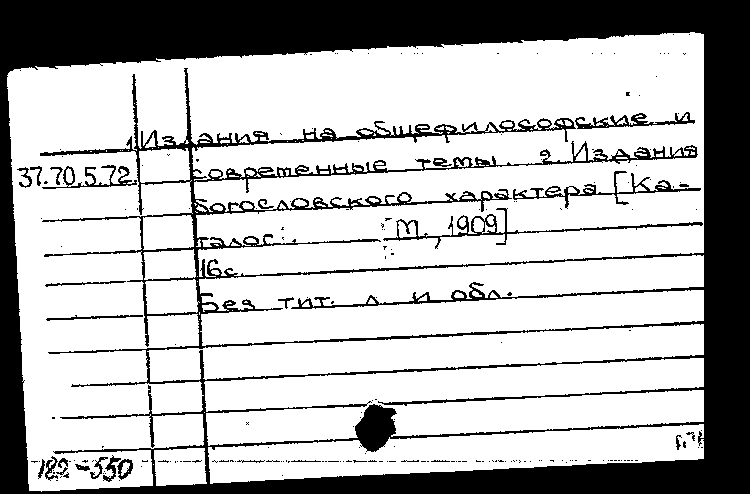 1. Издания на общефилософские и
37.70.5.72. современные темы. 2 Издания
богословского характера [Ка-
талог]. [М., 1909].
16с.
Без тит. л. и обл.
182-550